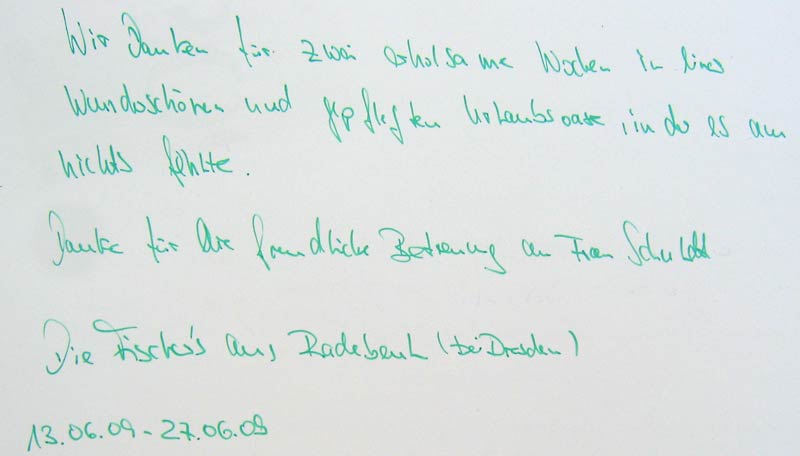 Wir Danken für zwei erholsame Wochen in einer
Wunderschönen und gepflegten Urlaubsoase, in der es an
nichts fehlte.
Danke für die freundliche Betreuung an Frau Schuldt
Die Fischer's aus Radebeul (bei Dresden)
13.06.09 - 27.06.09